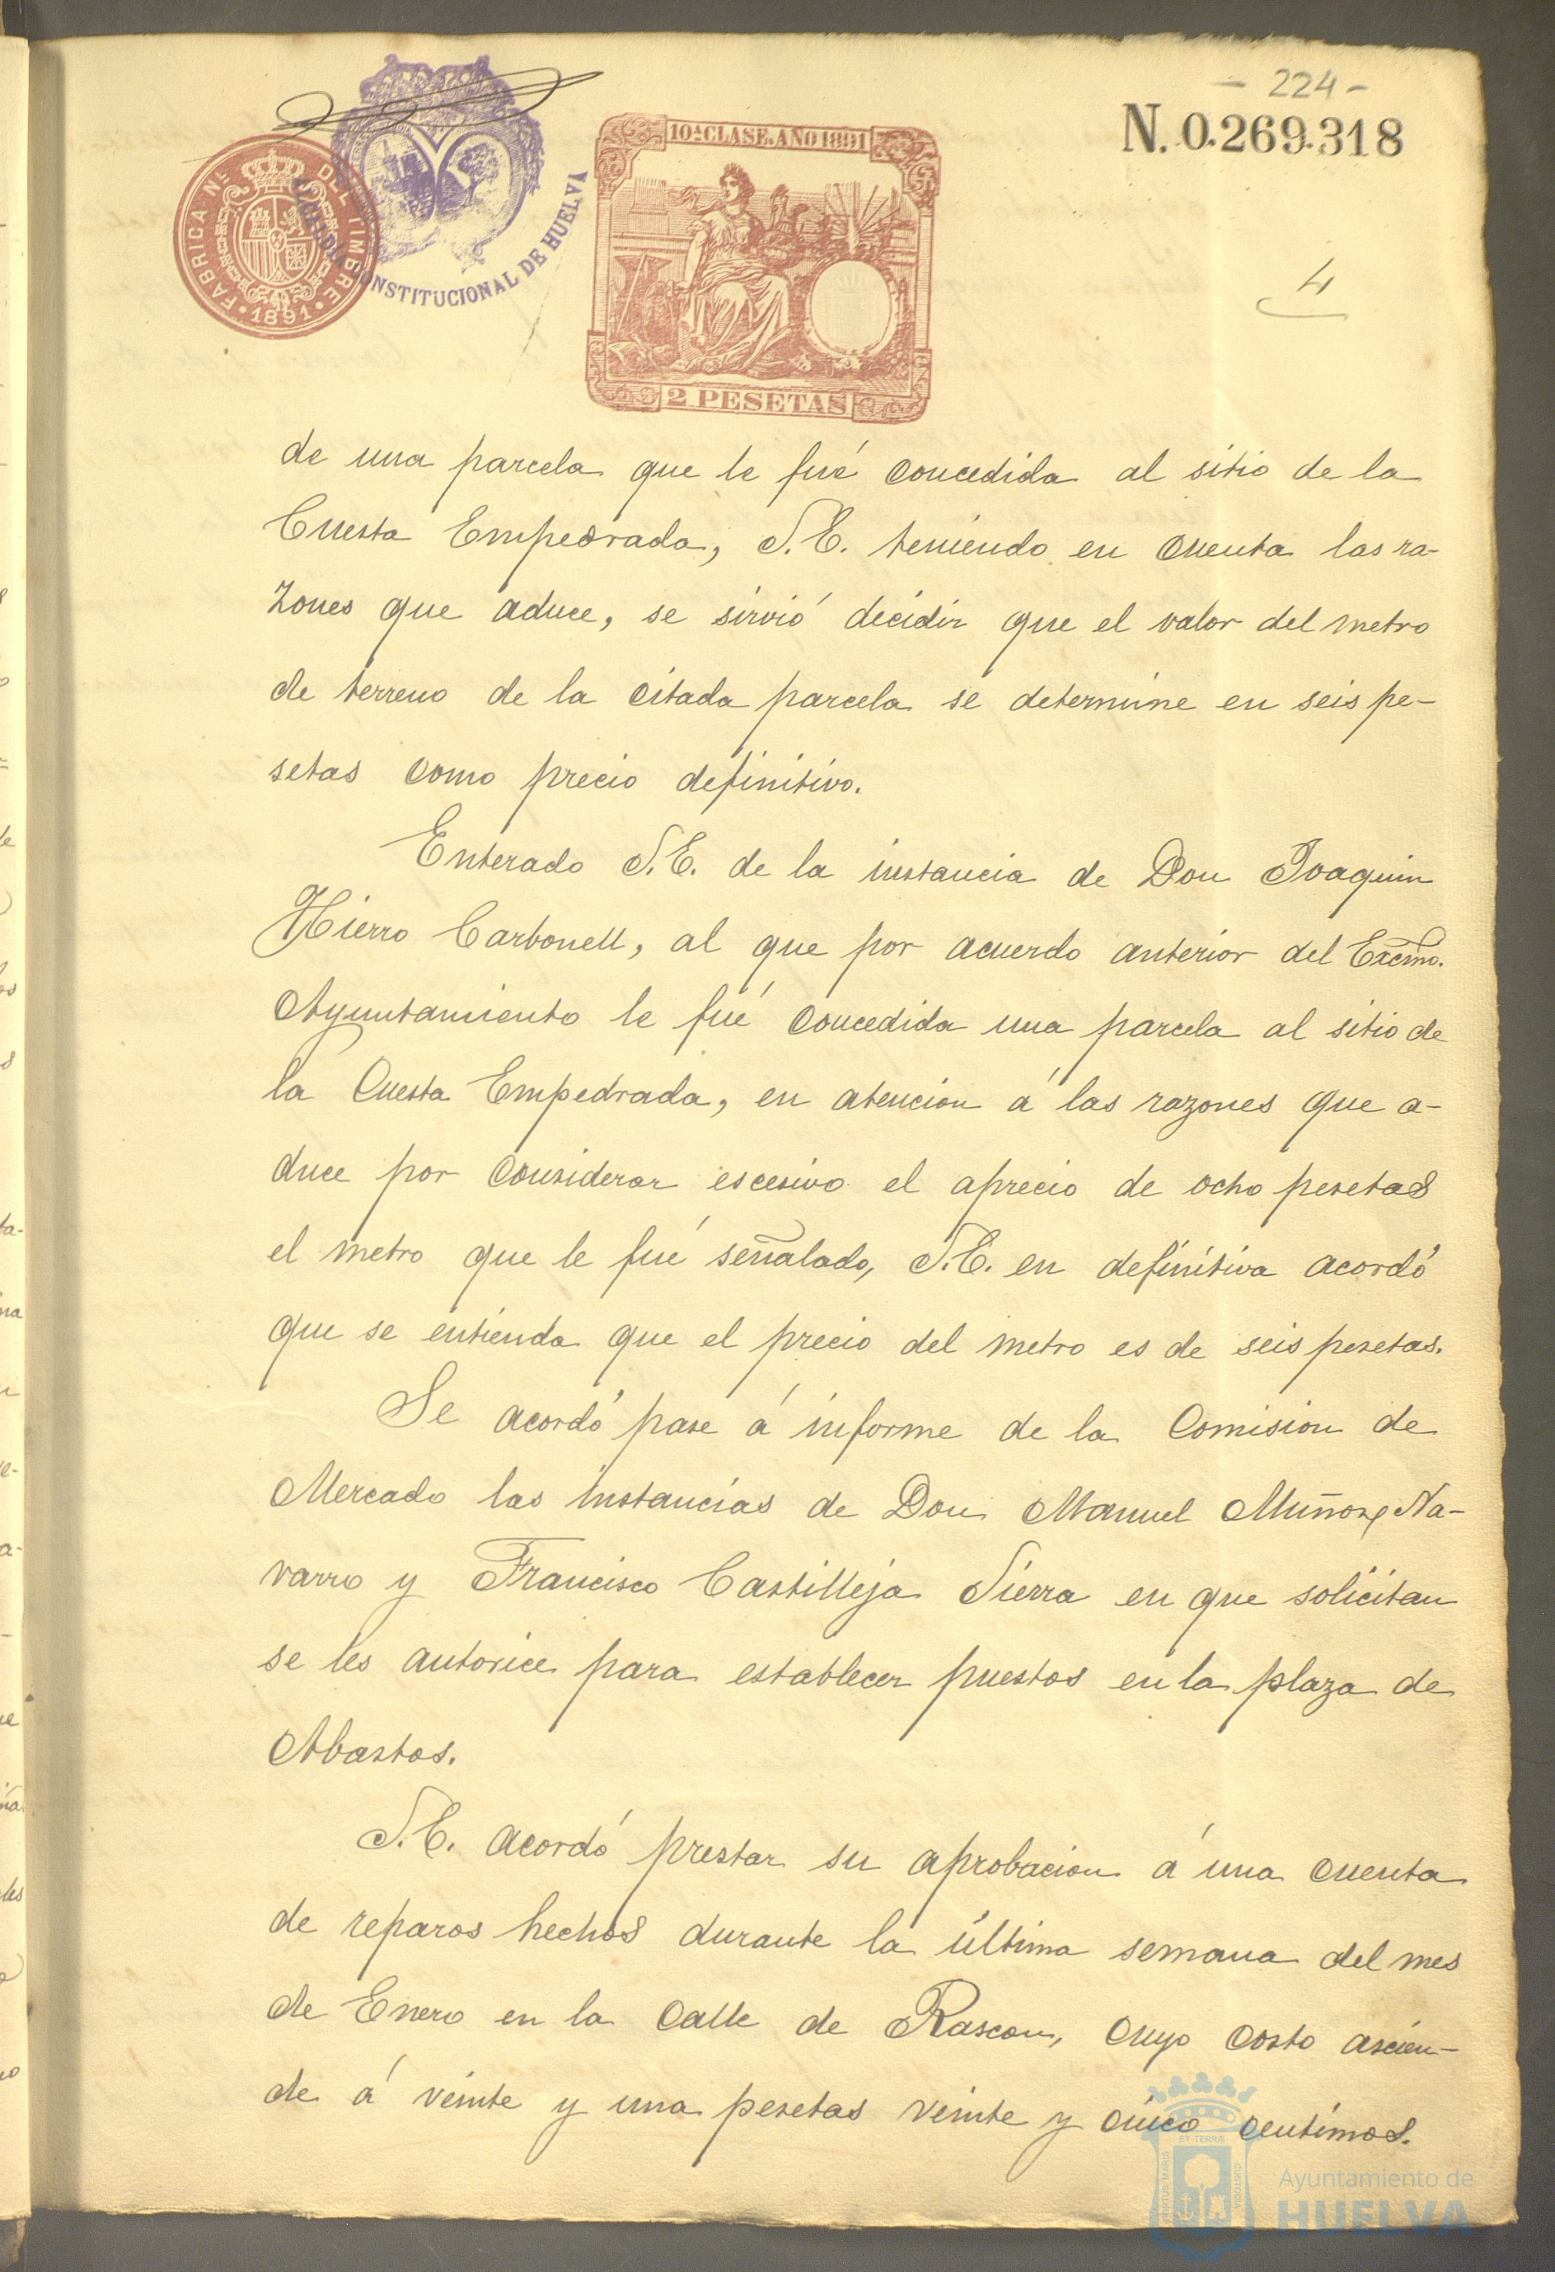 - 224 -
N. 0.269.318
FABRICA Nᴸ DEL TIMBRE
· 1891 ·
CONSTITUCIONAL DE HUELVA
10ª CLASE. AÑO 1891
2 PESETAS
4
de una parcela que le fué concedida al sitio de la
Cuesta Empedrada, S.E. teniendo en cuenta las ra-
zones que aduce, se sirvió decidir que el valor del metro
de terreno de la citada parcela se determine en seis pe-
setas como precio definitivo.
Enterado S.E. de la instancia de Don Joaquin
Hierro Carbonell, al que por acuerdo anterior del Excmo.
Ayuntamiento le fué concedida una parcela al sitio de
la Cuesta Empedrada, en atencion á las razones que a-
duce por considerar escesivo el aprecio de ocho pesetas
el metro que le fué señalado, S.E. en definitiva acordó
que se entienda que el precio del metro es de seis pesetas.
Se acordó pase á informe de la Comision de
Mercado las instancias de Don Manuel Muñoz Na-
varro y Francisco Castilleja Sierra en que solicitan
se les autorice para establecer puestos en la plaza de
Abastos.
S.E. acordó prestar su aprobacion á una cuenta
de reparos hechos durante la última semana del mes
de Enero en la calle de Rascon, cuyo costo ascien-
de á veinte y una pesetas veinte y cinco centimos.
Ayuntamiento de
HUELVA